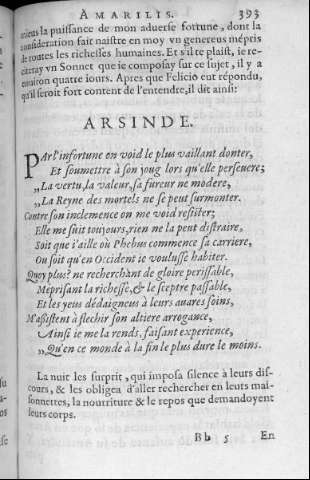 AMARILIS. 393
mieus la puissance de mon aduerse fortune, dont la
consideration fait naistre en moy vn genereus mépris
de toutes les richesses humaines. Et s'il te plaist, ie re-
citeray vn Sonnet que ie composay sur ce sujet, il y a
enuiron quatre iours. Apres que Felicio eut répondu,
qu'il seroit fort content de l'entendre, il dit ainsi:
ARSINDE.
PAr l'infortune on void le plus vaillant donter,
Et soumettre à son joug lors qu'elle perseuere;
„La vertu, la valeur, sa fureur ne modere,
„La Reyne des mortels ne se peut surmonter.
Contre son inclemence on me void resister;
Elle me suit toujours, rien ne la peut distraire,
Soit que i'aille où Phebus commence sa carriere,
Ou soit qu'en Occident ie voulusse habiter.
Quoy plus? ne recherchant de gloire perissable,
Méprisant la richesse, & le sceptre passable,
Et les yeus dédaigneus à leurs auares soins,
M'assistent à flechir son altiere arrogance,
Ainsi ie me la rends, faisant experience,
„Qu'en ce monde à la fin le plus dure le moins.
La nuit les surprit, qui imposa silence à leurs dis-
cours, & les obligea d'aller rechercher en leurs mai-
sonnettes, la nourriture & le repos que demandoyent
leurs corps.
Bb 5 En